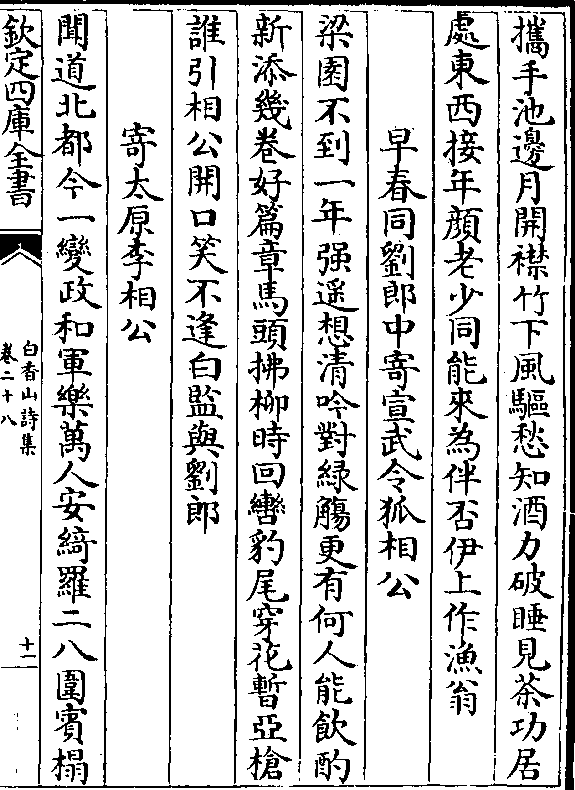 攜手池邊月開襟竹下風驅愁知酒力破睡見茶功居
處東西接年顔老少同能來為伴否伊上作漁翁
早春同劉郎中寄宣武令狐相公
梁園不到一年强遥想清吟對緑觴更有何人能飲酌
新添幾卷好篇章馬頭拂柳時回轡豹尾穿花暫亞槍
誰引相公開口笑不逢白監與劉郎
寄太原李相公
聞道北都今一變政和軍樂萬人安綺羅二八圍賓榻
欽定四庫全書
白香山詩集
卷二十八
十一